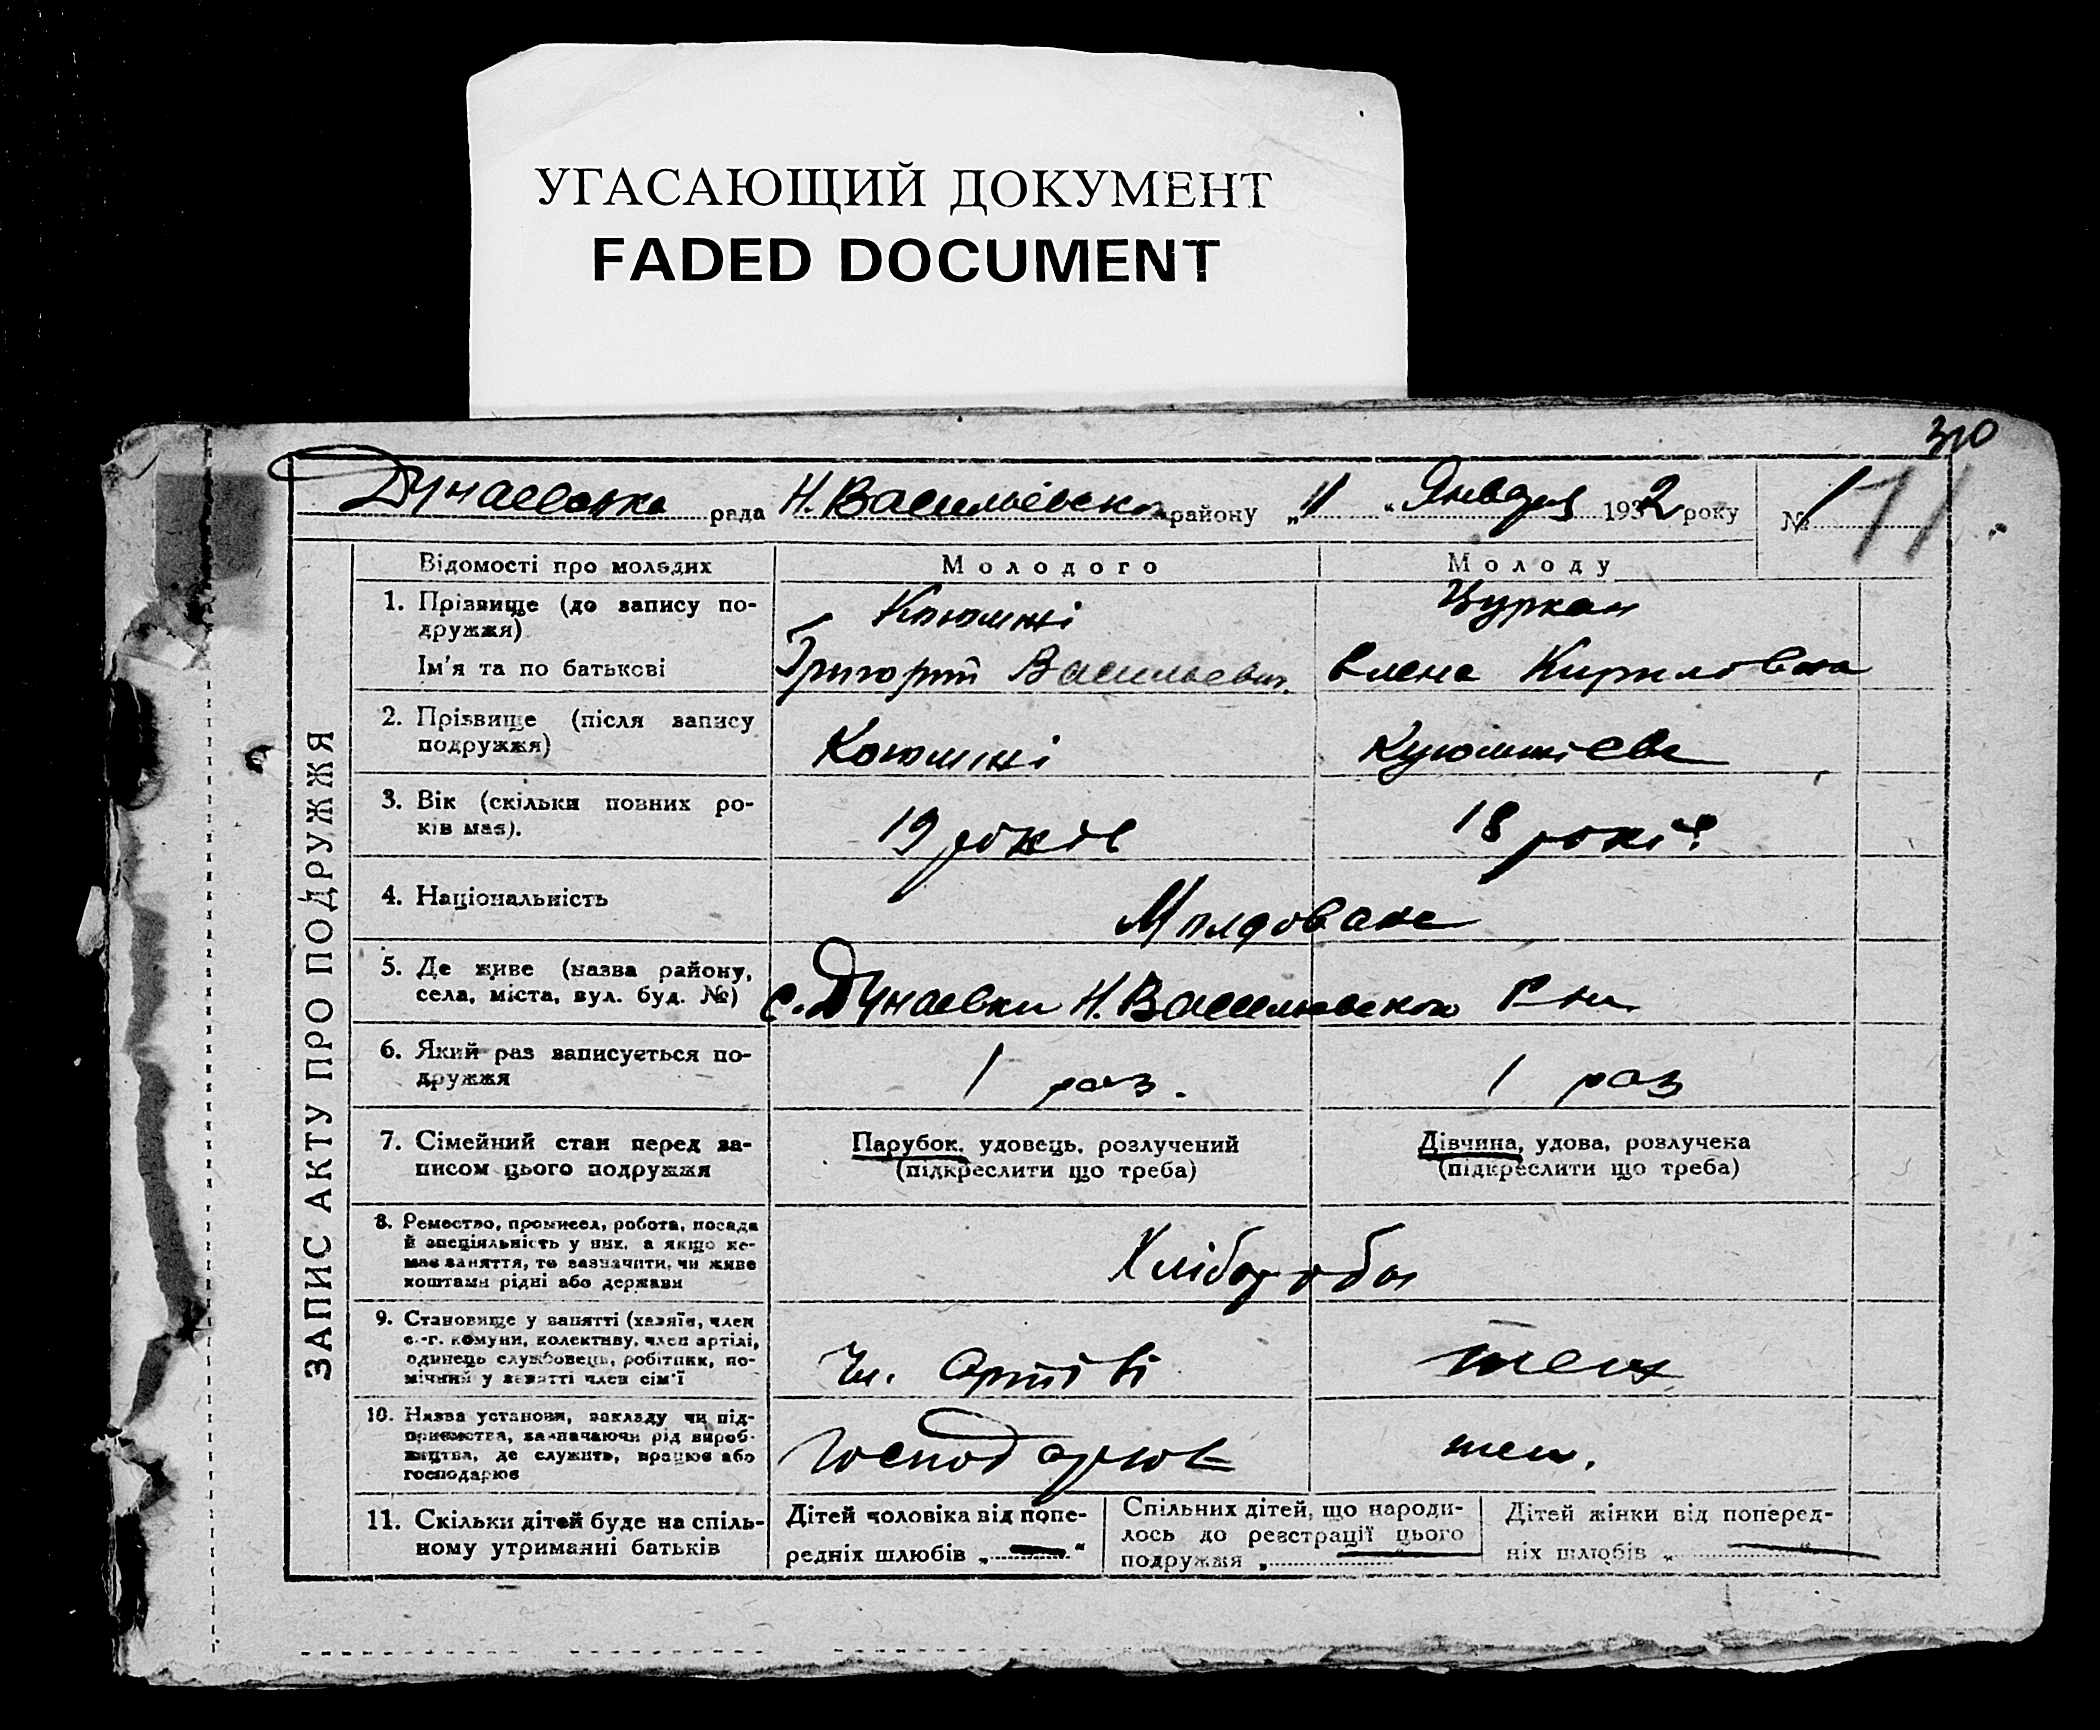 УГАСАЮЩИЙ ДОКУМЕНТ
FADED DOCUMENT
310
Дунаевска рада Н. Васильевско району „11“ Января 1932 року № 1
71
ЗАПИС АКТУ ПРО ПОДРУЖЖЯ
Відомості про молодих
Молодого
Молоду
1. Прізвище (до запису по-
дружжя)
Ім'я та по батькові
Цуркан
Григорій Васильевич
Елена Кириловна
2. Прізвище (після запису
подружжя)
3. Вік (скільки повних ро-
ків має).
19 років
18 років
4. Національність
Молдоване
5. Де живе (назва району,
села, міста, вул. буд. №)
с. Дунаевки Н. Васильевского Р-на
6. Який раз записується по-
дружжя
1 раз.
1 раз
7. Сімейний стан перед за-
писом цього подружжя
Парубок, удовець, розлучений
(підкреслити що треба)
Дівчина, удова, розлучена
(підкреслити що треба)
8. Ремество, промисел, робота, посада
й спеціяльність у них, а якщо не-
має заняття, то зазначити, чи живе
коштами рідні або держави
Хлібороби
9. Становище у занятті (хазяїн, член
с.-г. комуни, колективу, член артілі,
одинець службовець, робітник, по-
мічний у занятті член сім'ї
Чл. Артілі
10. Назва установи, закладу чи під-
приємства, зазначаючи рід вироб-
ництва, де служить, працює або
господарює
господарює
11. Скільки дітей буде на спіль-
ному утриманні батьків
Дітей чоловіка від попе-
редніх шлюбів „ — “
Спільних дітей, що народи-
лось до реєстрації цього
подружжя „ — “
Дітей жінки від поперед-
ніх шлюбів „ — “